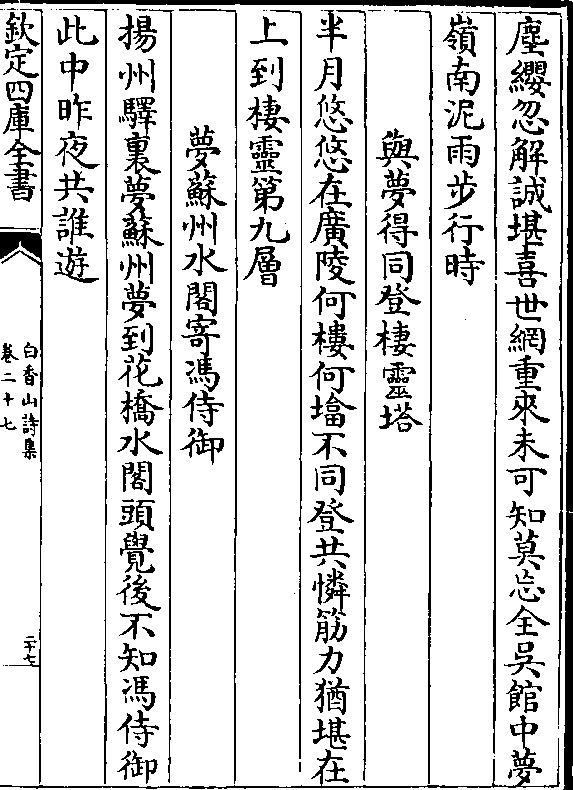 塵纓忽解誠堪喜世網重來未可知莫忘全吳館中夢
嶺南泥雨步行時
與夢得同登棲靈塔
半月悠悠在廣陵何樓何墖不同登共憐筋力猶堪在
上到棲靈第九層
夢蘇州水閣寄馮侍御
揚州驛裏夢蘇州夢到花橋水閣頭覺後不知馮侍御
此中昨夜共誰遊
欽定四庫全書
白香山詩集
卷二十七
二十七